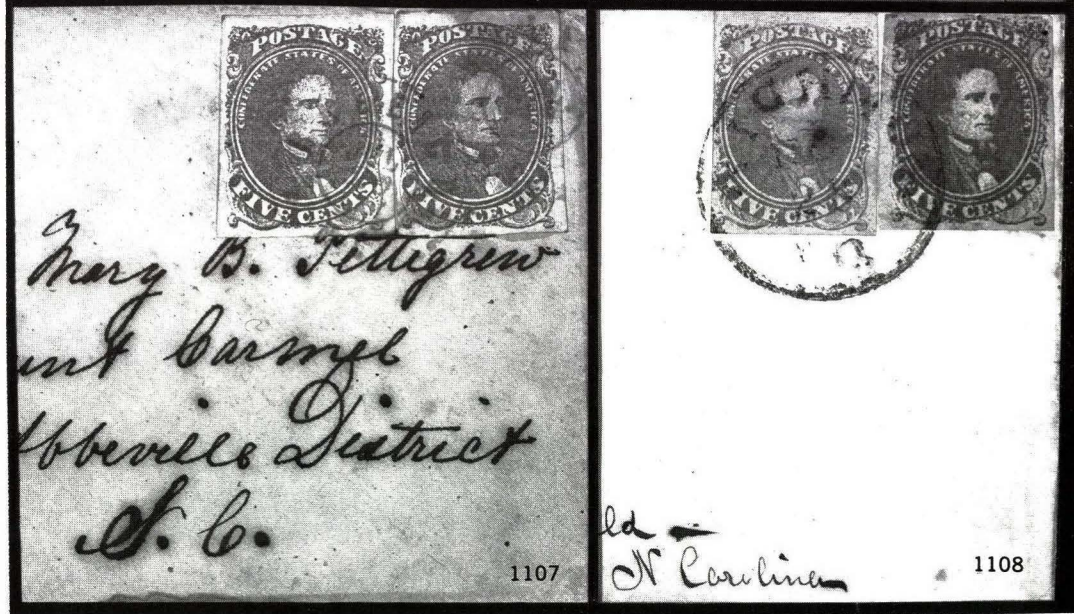 POSTAGE
CONFEDERATE STATES OF AMERICA
FIVE CENTS
POSTAGE
CONFEDERATE STATES OF AMERICA
FIVE CENTS
Mary B. Pettigrew
unt Carmel
Abbeville District
S. C.
1107
POSTAGE
FIVE CENTS
POSTAGE
CONFEDERATE STATES OF AMERICA
FIVE CENTS
ld —
N Carolina
1108